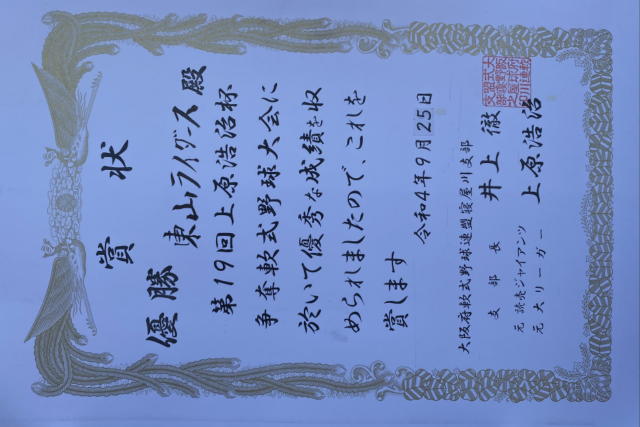 賞状
優勝
東山ライダース殿
第19回上原浩治杯
争奪軟式野球大会に
於いて優秀な成績を収
められましたので、これを
賞します
令和4年9月25日
大阪府軟式野球連盟寝屋川支部
支部長 井上 徹
元 読売ジャイアンツ
元 大リーガー 上原浩治